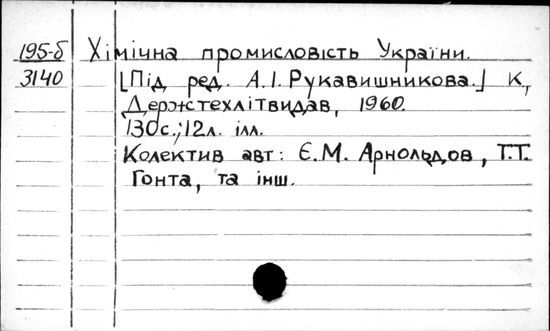 195-б Хімічна промисловість України.
3140 [Під ред. А.І. Рукавишникова.] К,
Держтехлітвидав, 1960.
130с.; 12л. ілл.
Колектив авт: Є.М. Арнольдов, Т.Т.
Гонта, та інш.